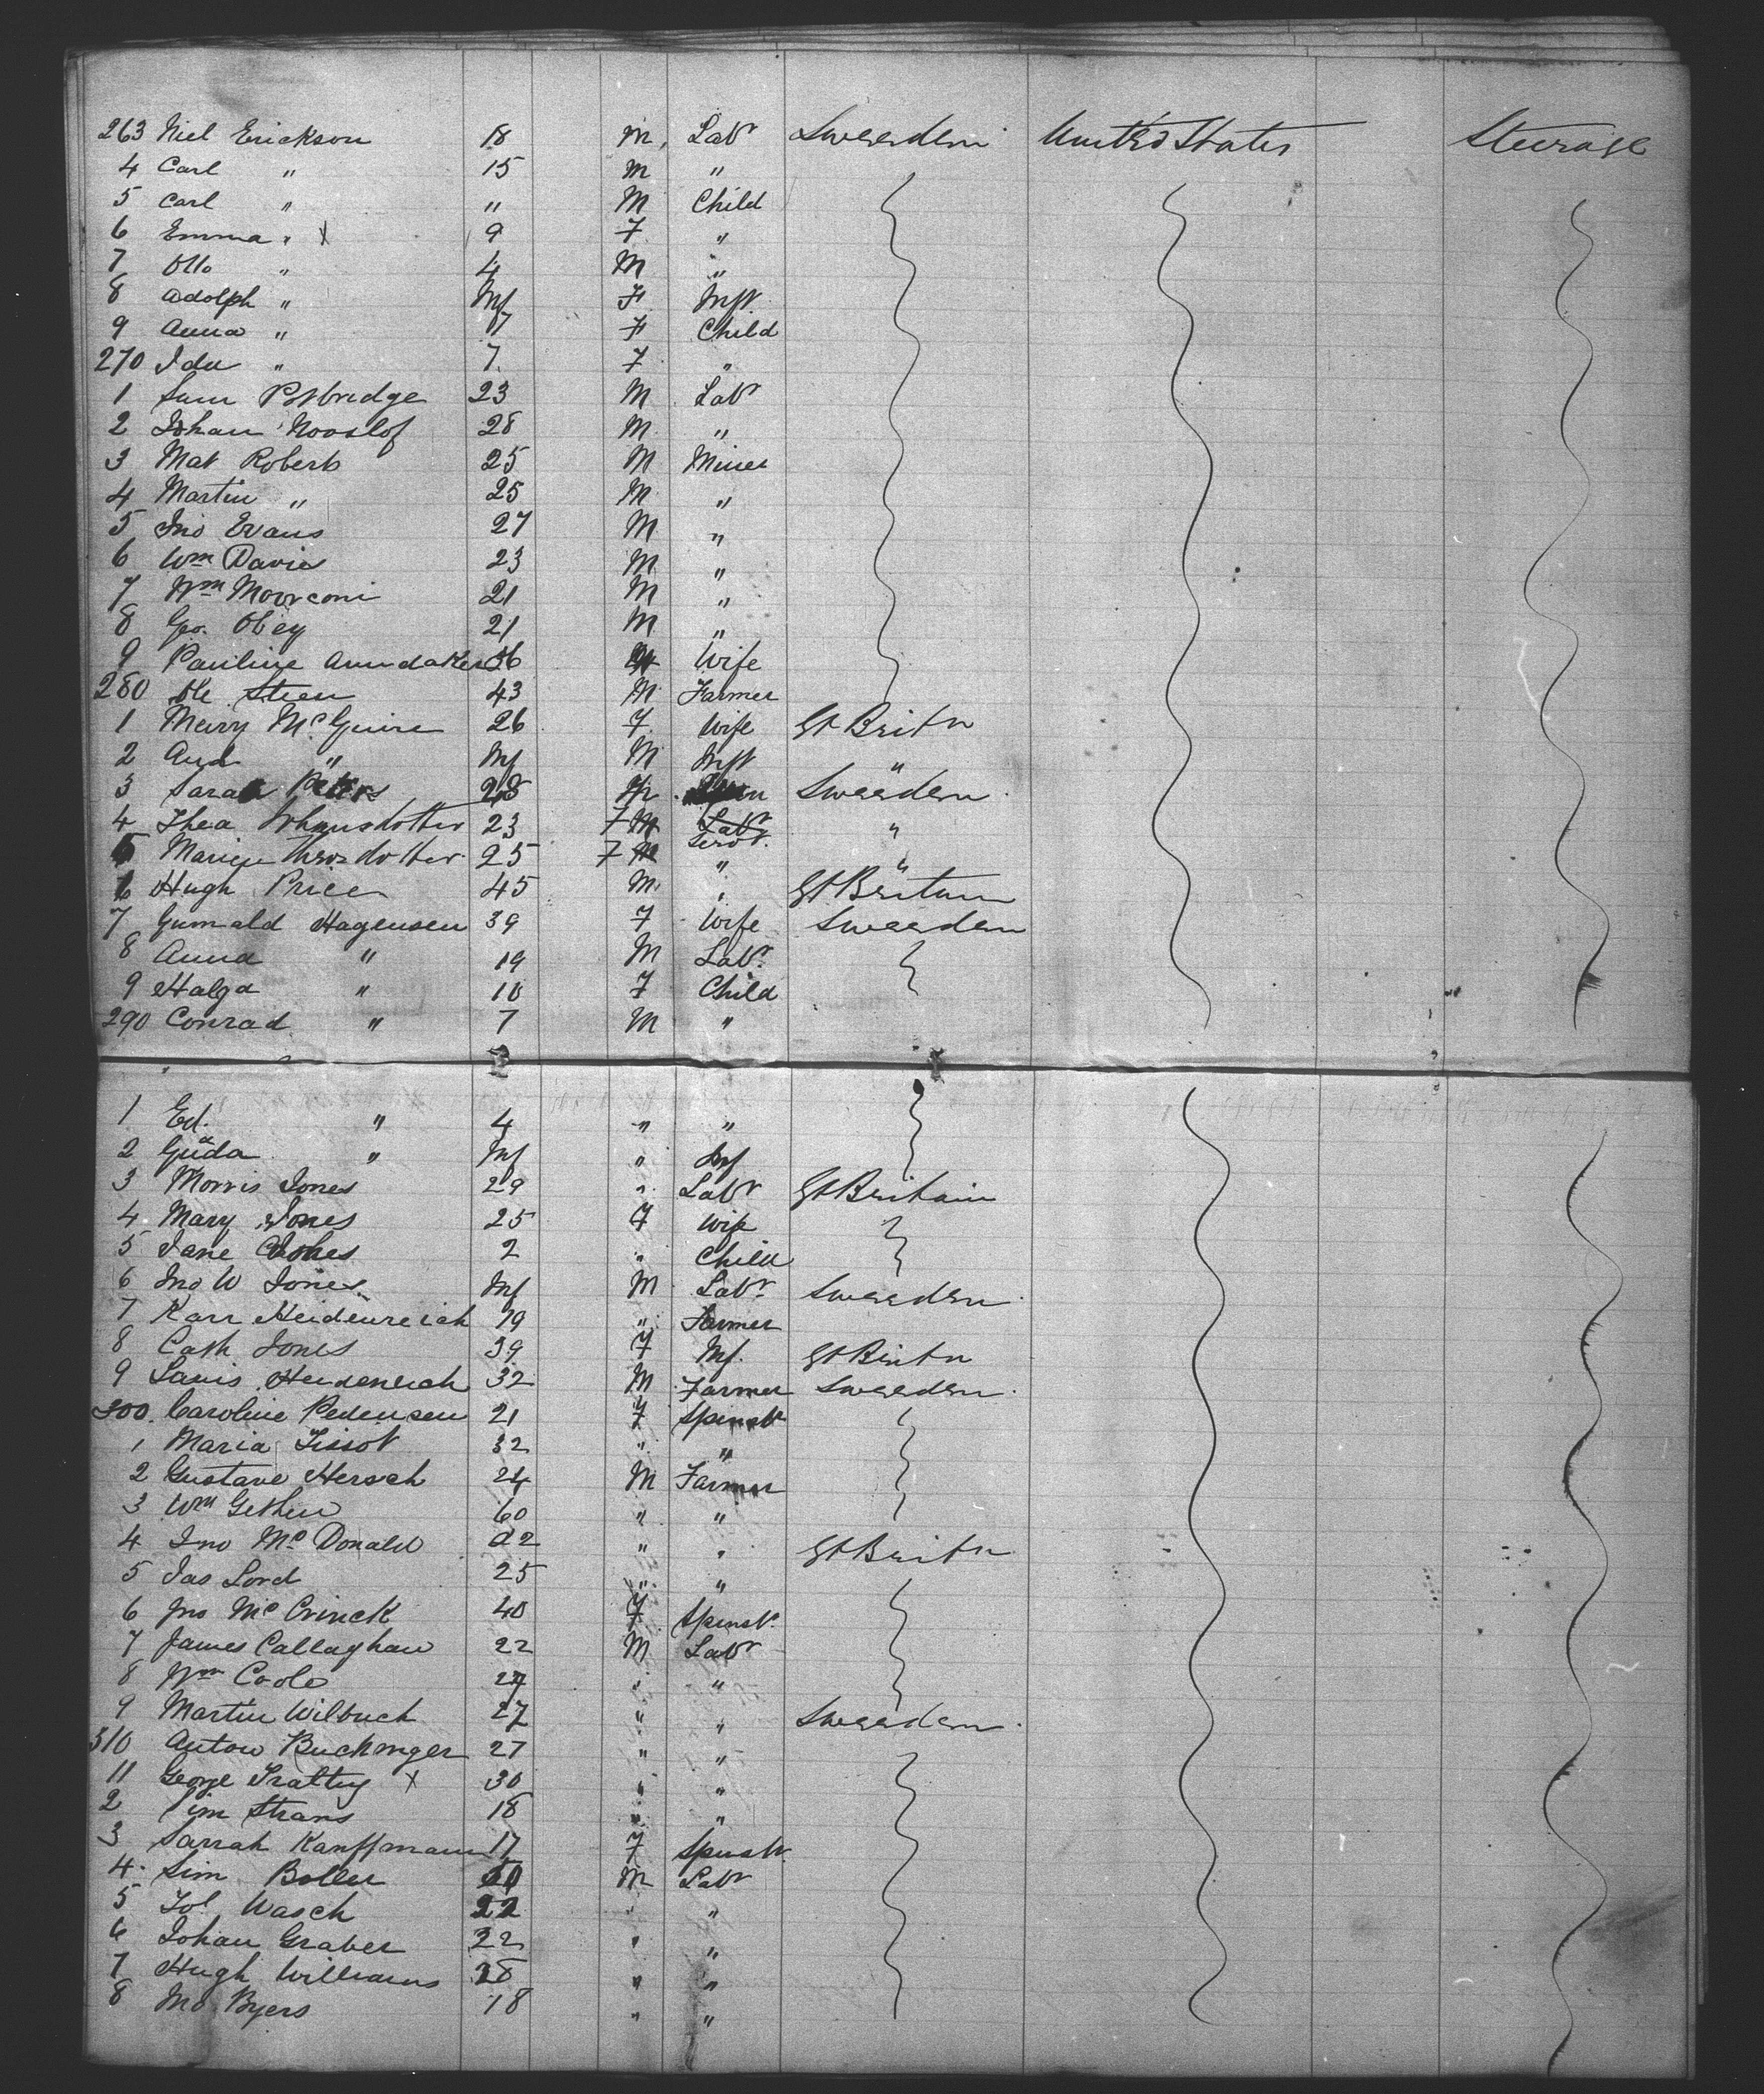 263 Niel Erickson 18 M. Labr Sweeden United States Steerage
4 Carl " 15 M "
5 Carl " " M Child
6 Emma " X 9 F "
7 Otto " 4 M "
8 Adolph " Inf F Inft
9 Anna " F Child
270 Ida " 7 F "
1 Sam 23 M Labr
2 Johan 28 M "
3 Mat Roberts 25 M Miner
4 Martin " 25 M "
5 Jno Evans 27 M "
6 Wm Davies 23 M "
7 Wm 21 M "
8 Geo. Obey 21 M "
9 Pauline 36 Wife
280 Ole Steen 43 M Farmer
1 Mary McGuire 26 F Wife Gt Britn
2 " Inf M Inft "
3 Sarah Peters 28 Sweeden
4 Thea 23 F Labr Serv. "
5 25 F " "
6 Hugh Price 45 M " Gt Britain
7 Gumald Hagensen 39 F Wife Sweeden
8 Anna " 19 M Labr.
9 Halga " 10 F Child
290 Conrad " 7 M "
1 Ed. " 4 " "
2 Guda " Inf " Inf
3 Morris Jones 29 " Labr Gt Britain
4 Mary Jones 25 F Wife
5 Jane 2 " Child
6 Jno W Jones Inf M Labr. Sweeden
7 Karr Heidenreich 19 " Farmer
8 Cath Jones 39 F Inf. Gt Britn
9 Heidenreich 32 M Farmer Sweeden
300. Caroline Pedensen 21 F Spinstr
1 Maria Tissot 32 " "
2 Gustave Hersch 24 M Farmer
3 Wm Gethen 60 " "
4 Jno McDonald 22 " " Gt Britn
5 Jas Lord 25 " "
6 Jno McCrinck 40 F Spinstr.
7 James Callaghan 22 M Labr
8 Wm Coole " "
9 Martin Wilbuch 27 " " Sweeden
310 Anton Buchinger 27 " "
11 George X 30 " "
2 Strans 18 " "
3 Sarrah Kanffmann 17 F Spinstr.
4. Sim Boller M Labr
5 Wasch 22 " "
6 Johan Graber 22 " "
7 Hugh Williams 28 " "
8 Byers 18 " "